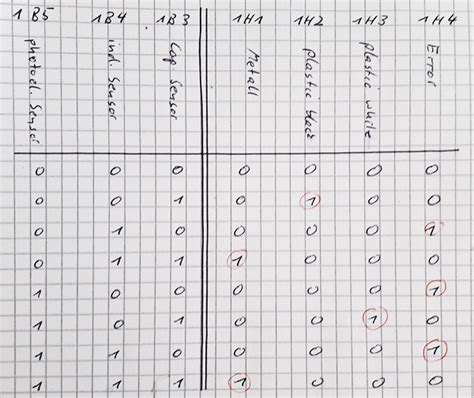 1B5 1B4 1B3 1H1 1H2 1H3 1H4
photoel. Sensor ind. Sensor Cap. Sensor Metall plastic black plastic white Error
0 0 0 0 0 0 0
0 0 1 0 1 0 0
0 1 0 0 0 0 1
0 1 1 1 0 0 0
1 0 0 0 0 0 1
1 0 1 0 0 1 0
1 1 0 0 0 0 1
1 1 1 1 0 0 0